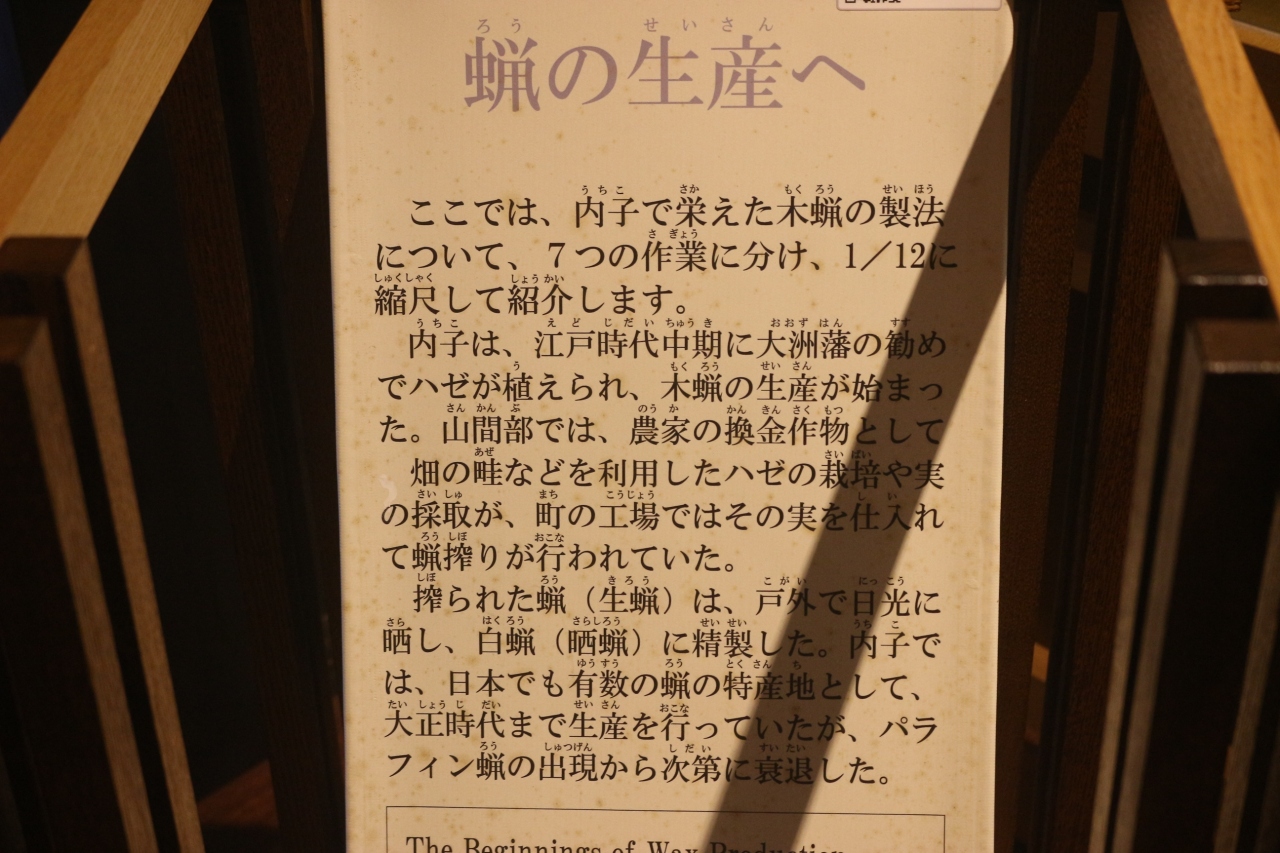 蝋の生産へ
ここでは、内子で栄えた木蝋の製法
について、７つの作業に分け、1／12に
縮尺して紹介します。
内子は、江戸時代中期に大洲藩の勧め
でハゼが植えられ、木蝋の生産が始まっ
た。山間部では、農家の換金作物として
畑の畦などを利用したハゼの栽培や実
の採取が、町の工場ではその実を仕入れ
て蝋搾りが行われていた。
搾られた蝋（生蝋）は、戸外で日光に
晒し、白蝋（晒蝋）に精製した。内子で
は、日本でも有数の蝋の特産地として、
大正時代まで生産を行っていたが、パラ
フィン蝋の出現から次第に衰退した。
The Beginnings of Wax Production